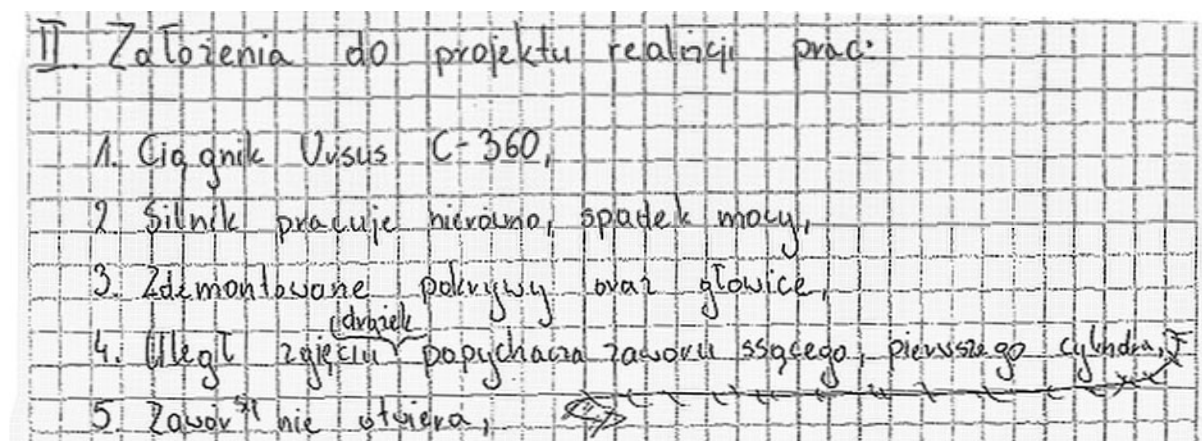 II. Założenia do projektu realizcji prac:
1. Ciągnik Ursus C-360,
2. Silnik pracuje nierówno, spadek mocy,
3. Zdemontowane pokrywy oraz głowice,
4. Uległ zgięciu drążek popychacza zaworu ssącego, pierwszego cylindra,
5. Zawór się nie otwiera,